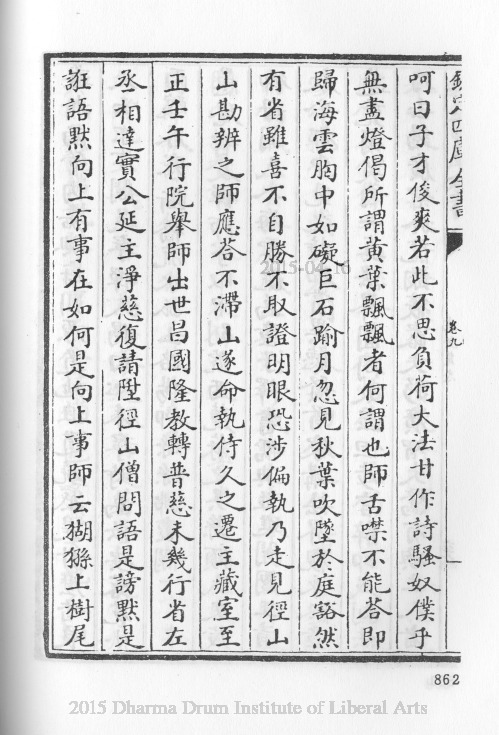 欽定四庫全書
卷九
呵曰子才俊爽若此不思負荷大法甘作詩騷奴僕乎
無盡燈偈所謂黄葉飄飄者何謂也師舌噤不能荅即
歸海雲胸中如礙巨石踰月忽見秋葉吹墜於庭豁然
有省雖喜不自勝不取證明眼恐涉偏執乃走見徑山
山勘辨之師應荅不滯山遂命執侍久之遷主藏室至
正壬午行院舉師出世昌國隆教轉普慈未幾行省左
丞相達實公延主淨慈復請陞徑山僧問語是謗默是
誑語默向上有事在如何是向上事師云猢猻上樹尾
862
2015-04-16
2015 Dharma Drum Institute of Liberal Arts